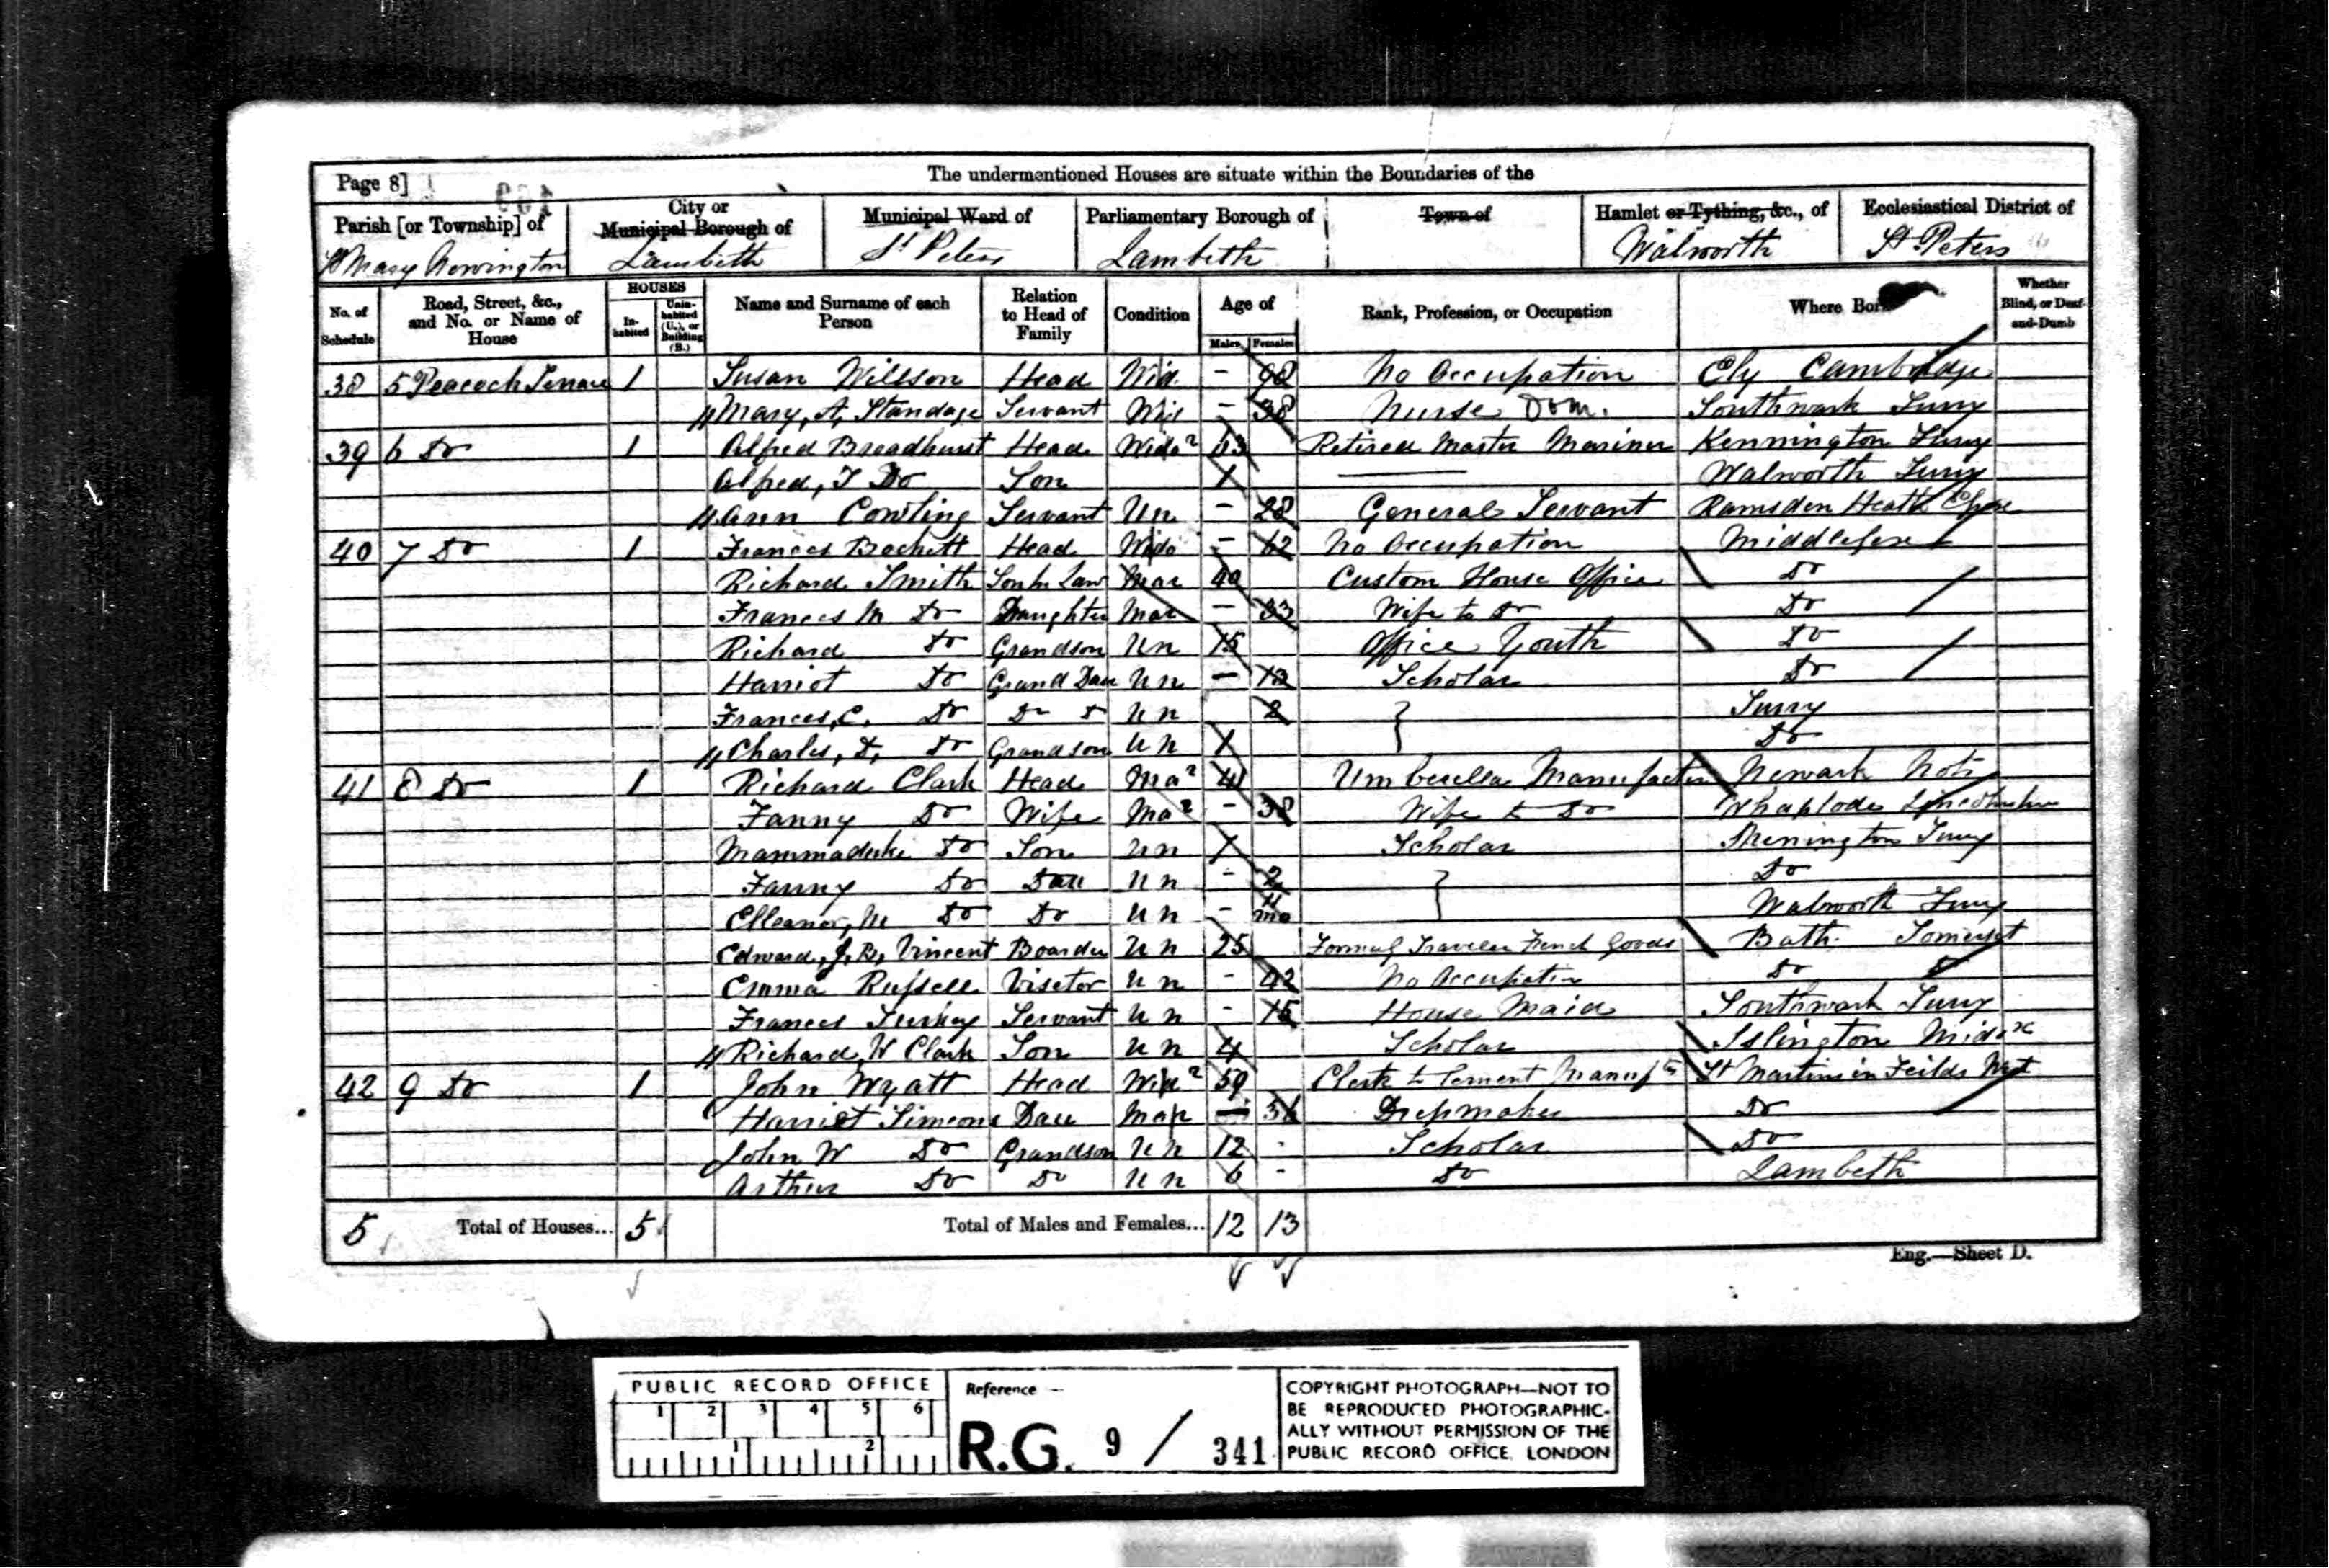 Page 8]
The undermentioned Houses are situate within the Boundaries of the
Parish [or Township] of
City or Municipal Borough of
Municipal Ward of
Parliamentary Borough of
Town of
Hamlet or Tything, &c., of
Ecclesiastical District of
St Mary Newington
Lambeth
St Peters
Lambeth
Walworth
St Peters
No. of Schedule
Road, Street, &c., and No. or Name of House
HOUSES
In-habited
Unin-habited (U.), or Building (B.)
Name and Surname of each Person
Relation to Head of Family
Condition
Age of
Males
Females
Rank, Profession, or Occupation
Where Born
Whether Blind, or Deaf-and-Dumb
38 5 Peacock Terrace 1 Susan Willson Head Wid. - No Occupation Ely Cambridge
Mary, A, Standage Servant Wid - 38 Nurse Dom. Southwark Surry
39 6 Do 1 Alfred Broadhurst Head Widr Retired Master Mariner Kennington Surry
Alfred, T Do Son 1 Walworth Surry
Ann Cowling Servant Un - 28 General Servant Ramsden Heath Essex
40 7 Do 1 Frances Brockett Head Wido - 62 No Occupation Middlesex
Richard Smith Son in Law Mar 40 Custom House Office Do
Frances M Do Daughter Mar - 33 Wife to Do Do
Richard Do Grandson Un 15 Office Youth Do
Harriot Do Grand Dau Un - Scholar Do
Frances, C. Do Do Do Un 2 Surry
Charles, D, Do Grandson Un 1 Do
41 8 Do 1 Richard Clark Head Mar 41 Umberella Manufacturer Newark Nots
Fanny Do Wife Mar - 38 Wife to Do Whaplode Lincolnshire
Marmaduke Do Son Un 7 Scholar Surry
Fanny Do Dau Un - 2 Do
Elleanor, M Do Do Un - 4 mo Walworth Surry
Edward, J, R, Vincent Boarder Un 25 Traveler French Goods Bath Somerset
Emma Russell Visetor Un - 42 No Occupation Do Do
Frances Turkey Servant Un - 15 House Maid Southwark Surry
Richard, W Clark Son Un 4 Scholar Islington Midsx
42 9 Do 1 John Wyatt Head Widr 59 Clerk to Cement Manufr St Martins in Feilds
Harriet Simeons Dau Mar - 36 Dressmaker Do
John W Do Grandson Un 12 - Scholar Do
Arthur Do Do Un 6 - Do Lambeth
5 Total of Houses... 5 Total of Males and Females... 12 13
Eng.—Sheet D.
PUBLIC RECORD OFFICE
1 2 3 4 5 6
1 2
Reference —
R.G. 9 / 341
COPYRIGHT PHOTOGRAPH—NOT TO
BE REPRODUCED PHOTOGRAPHIC-
ALLY WITHOUT PERMISSION OF THE
PUBLIC RECORD OFFICE, LONDON